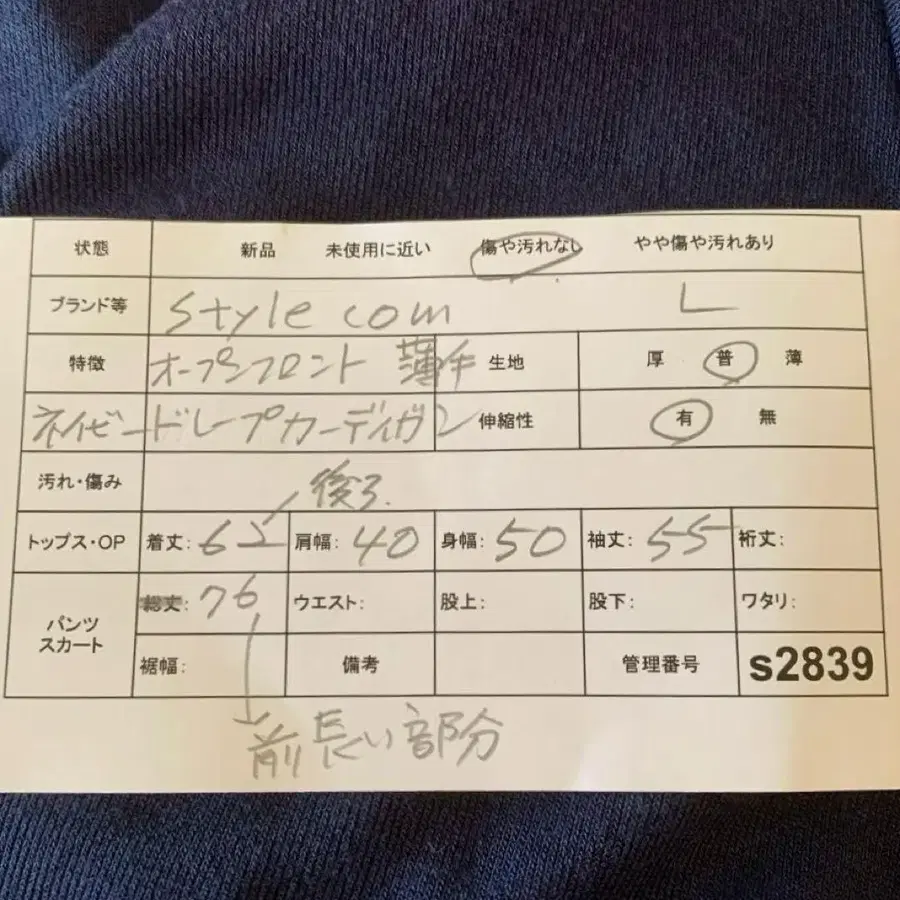 状態 新品 未使用に近い 傷や汚れなし やや傷や汚れあり
ブランド等 style com L
特徴 オープンフロント 薄手 生地 厚 普 薄
ネイビードレープカーディガン 伸縮性 有 無
汚れ・傷み 後ろ
トップス・OP 着丈: 62 肩幅: 40 身幅: 50 袖丈: 55 裄丈:
パンツ スカート 総丈: 76 ウエスト: 股上: 股下: ワタリ:
裾幅: 備考 管理番号 s2839
前長い部分